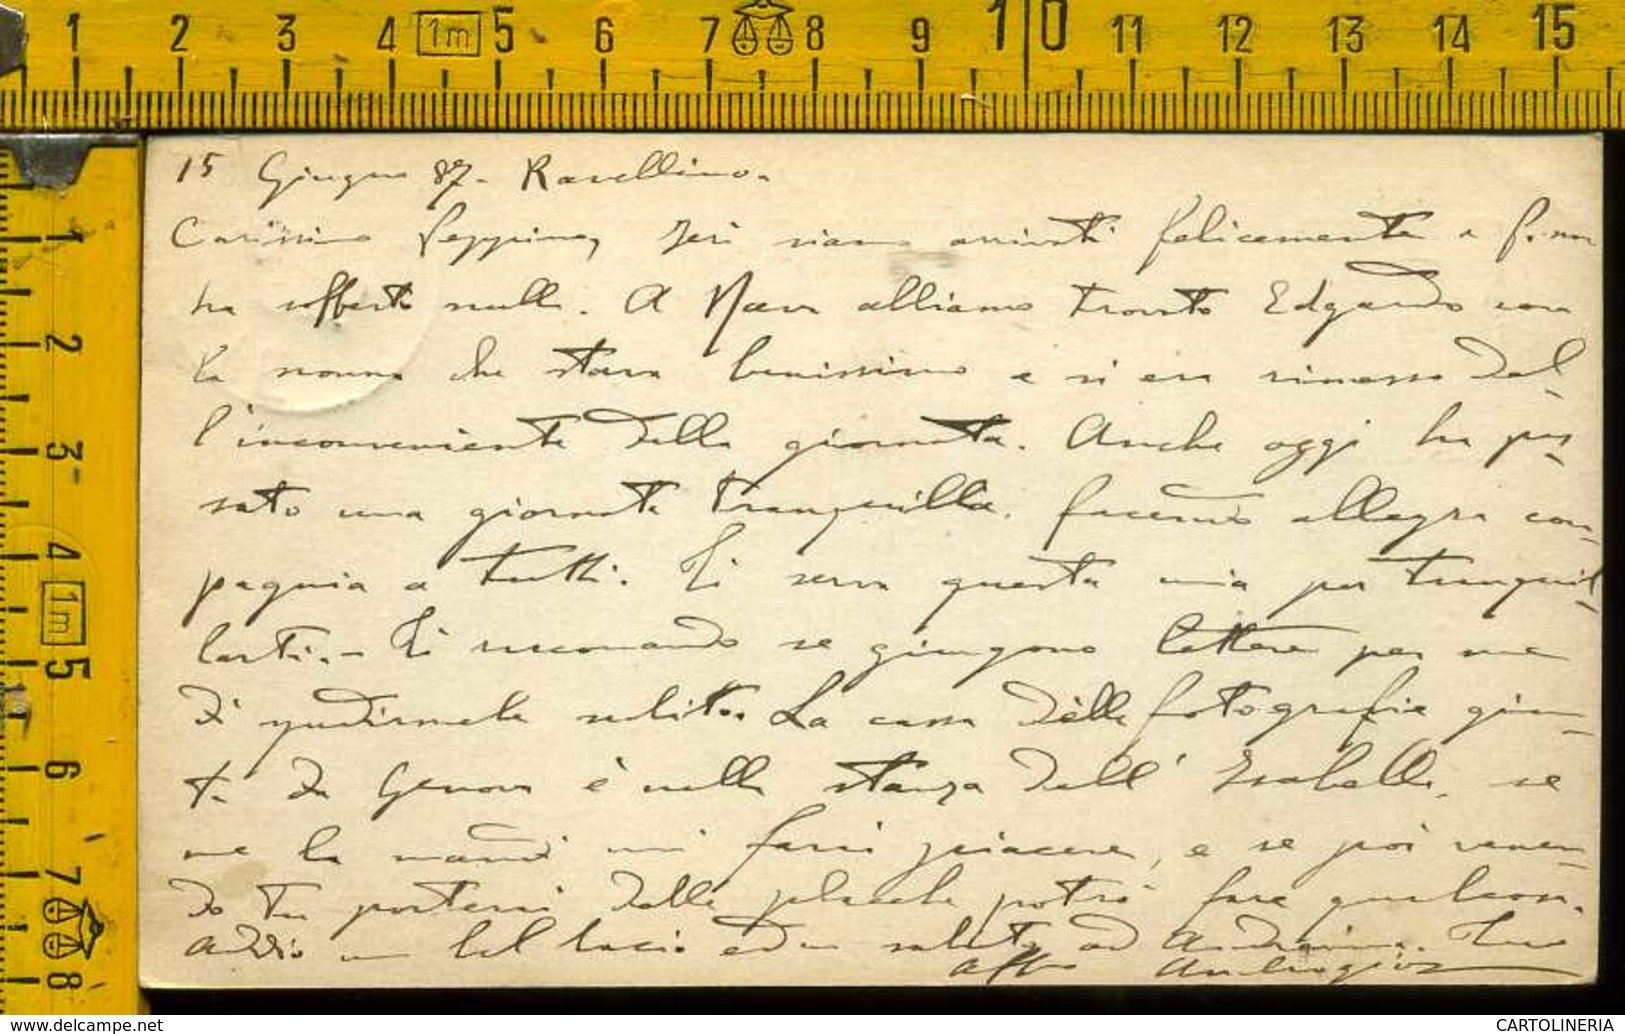 1 2 3 4 1m 5 6 7 8 9 10 11 12 13 14 15
1 2 3 4 1m 5 6 7 8
15 Giugno 87. Ravellino.
Carissimo Peppino, Ieri siamo arrivati felicemente e
ha sofferto nulla. A abbiamo trovato Edgardo con
la nonna che stava benissimo e si era rimesso dal-
l'inconveniente della giornata. Anche oggi ha pas-
sato una giornata tranquilla, facendo allegra com-
pagnia a tutti. Ti serva questa mia per tranquil-
larti. - Ti raccomando se giungono lettere per me
di spedirmele subito. La cassa della fotografia giun-
ta da Genova è nella stanza dell' Isabella, se
me la mandi mi farai piacere, e se poi venen-
do tu porterai delle placche potrò fare qualcosa.
Addio un bel bacio ed un saluto ad Tuo
Aff Ambrogio
www.delcampe.net
CARTOLINERIA